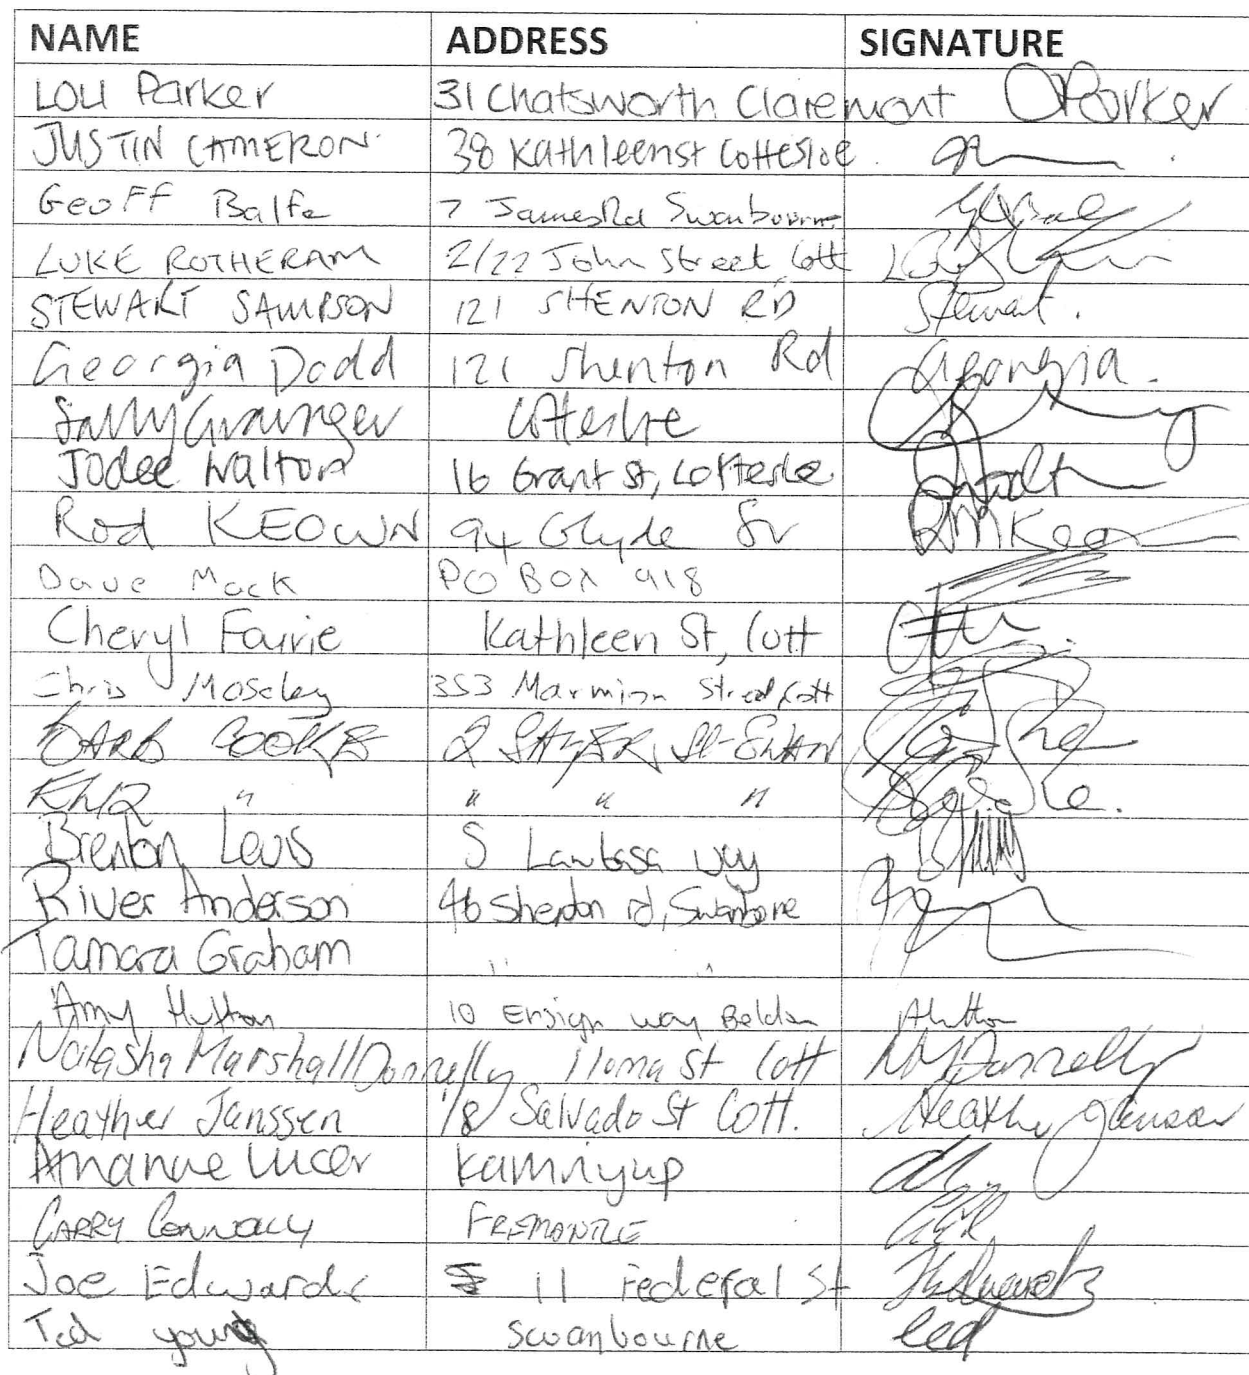 NAME ADDRESS SIGNATURE
Lou Parker 31 Chatsworth Claremont Parker
JUSTIN CAMERON 38 Kathleen st Cottesloe.
Geoff Balfe 7 James Rd Swanbourne
LUKE ROTHERAM 2/22 John Street Cott
STEWART SAMPSON 121 SHENTON RD Stewart.
Georgia Dodd 121 Shenton Rd Georgia.
Sally Grainger Cottesloe
Jodee Walton 16 Grant St, Cottesloe
Rod KEOWN 94 Glyde St RMKeo
Dave Mock PO BOX 918
Cheryl Fairie Kathleen St, Cott
Chris Moseley 353 Marmion Street Cott
BARB COOKE 2 SAYER St SWAN
" " " "
Brenton Lewis 5 way
River Anderson 46 Shenton rd, Swanborne
Tamara Graham " "
Amy Hutton 10 Ensign way Beldon AHutton
Natasha Marshall Donnelly Iloma St Cott NMDonnelly
Heather Janssen 1/8 Salvado St Cott. Heather Janssen
Karrinyup
GARRY CONNOLLY FREMANTLE
Joe Edwards 11 Federal St JEdwards
Ted young Swanbourne Ted